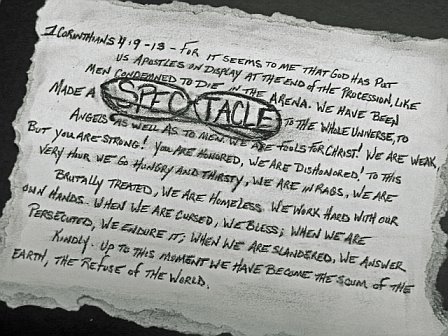 1 CORINTHIANS 4:9-13 - FOR IT SEEMS TO ME THAT GOD HAS PUT
US APOSTLES ON DISPLAY AT THE END OF THE PROCESSION, LIKE
MEN CONDEMNED TO DIE IN THE ARENA. WE HAVE BEEN
MADE A SPECTACLE TO THE WHOLE UNIVERSE, TO
ANGELS AS WELL AS TO MEN. WE ARE FOOLS FOR CHRIST! WE ARE WEAK
BUT YOU ARE STRONG! YOU ARE HONORED, WE ARE DISHONORED! TO THIS
VERY HOUR WE GO HUNGRY AND THIRSTY, WE ARE IN RAGS, WE ARE
BRUTALLY TREATED, WE ARE HOMELESS. WE WORK HARD WITH OUR
OWN HANDS. WHEN WE ARE CURSED, WE BLESS; WHEN WE ARE
PERSECUTED, WE ENDURE IT; WHEN WE ARE SLANDERED, WE ANSWER
KINDLY. UP TO THIS MOMENT WE HAVE BECOME THE SCUM OF THE
EARTH, THE REFUSE OF THE WORLD.